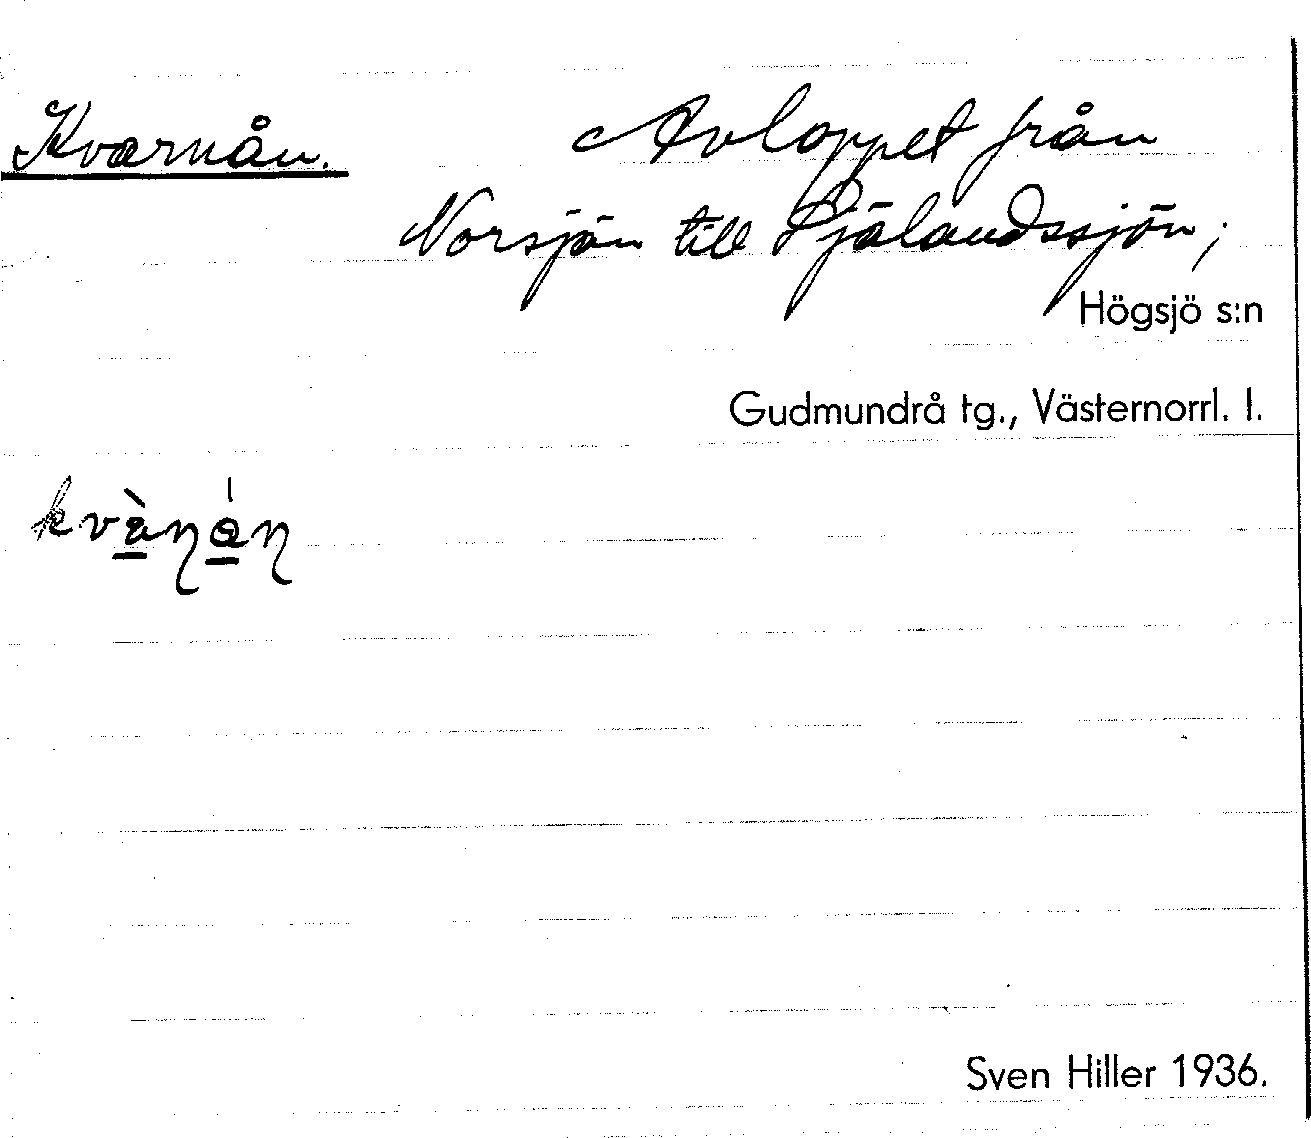 Kvarnån. Avloppet från
Norsjön till Själandssjön;
Högsjö s:n
Gudmundrå tg., Västernorrl. l.
Sven Hiller 1936.